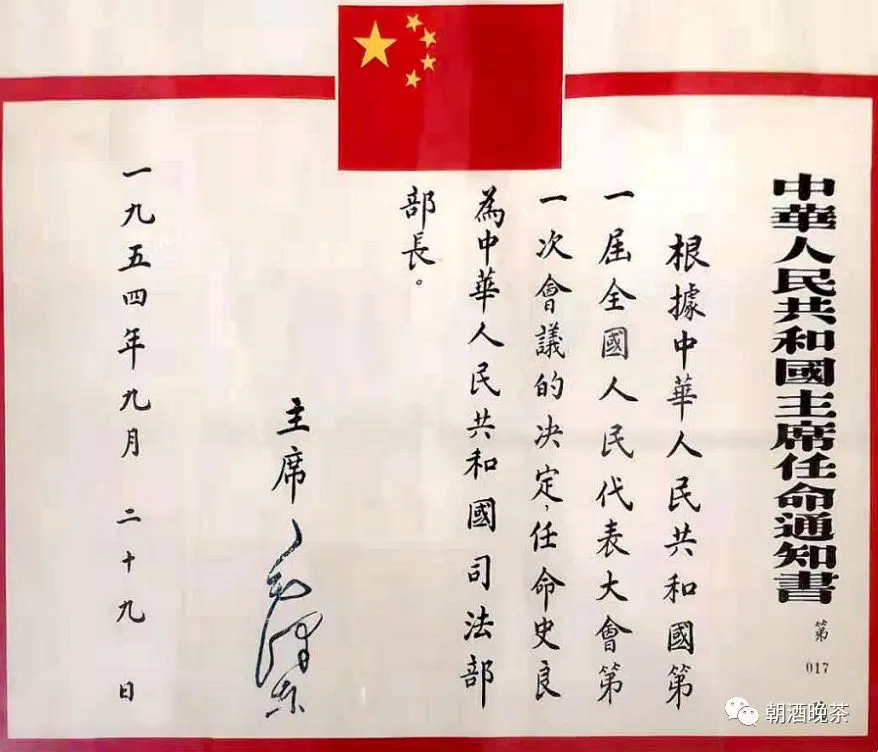 中華人民共和國主席任命通知書
第
017
根據中華人民共和國第
一屆全國人民代表大會第
一次會議的决定，任命史良
為中華人民共和國司法部
部長。
主席 毛澤东
一九五四年九月 二十九 日
朝酒晚茶